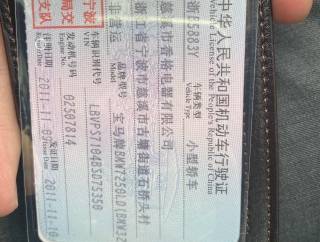 中华人民共和国机动车行驶证
Vehicle License of the People's Republic of China
车辆类型
Vehicle Type
小型轿车
慈溪市香格电器有限公司
浙江省宁波市慈溪市古塘街道石桥头村
非营运
品牌型号
Model
宝马牌BMW7250LD(BMW32
车辆识别代号
VIN
发动机号码
Engine No.
02507814
注册日期
2011-11-09
发证日期
Issue Date
2011-11-10
宁波
支队